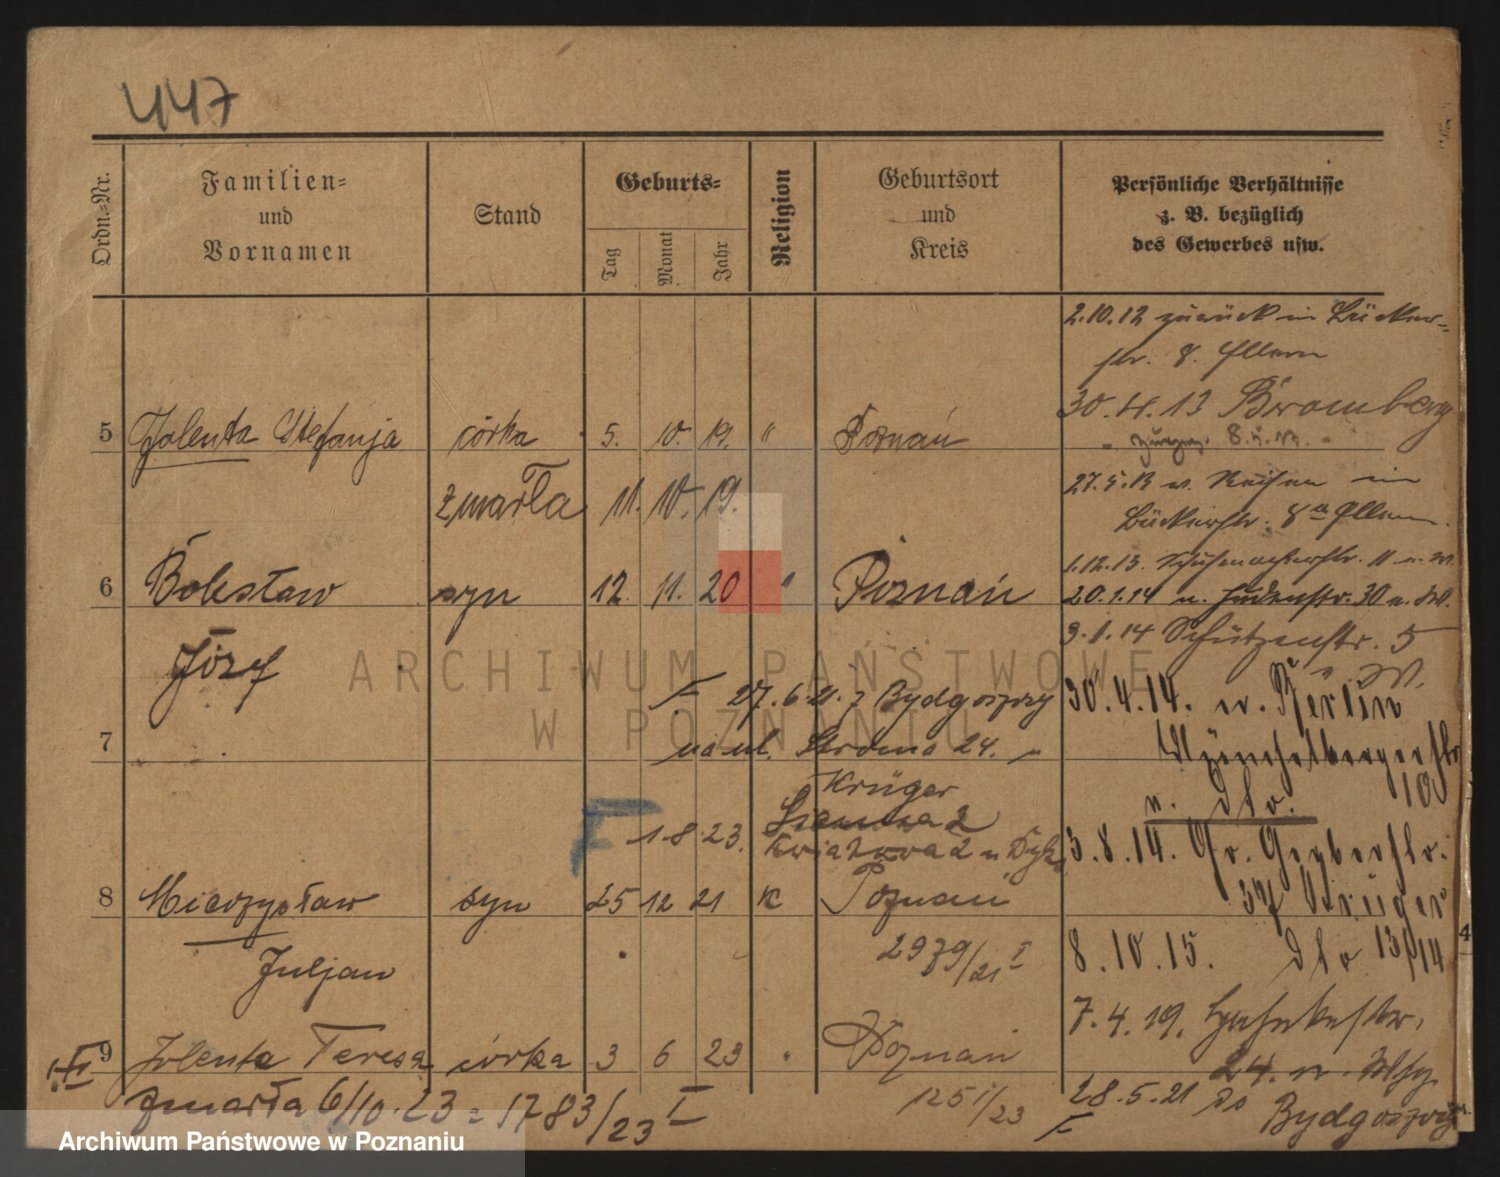 447
Ordn.-Nr.
Familien-
und
Vornamen
Stand
Geburts-
Tag
Monat
Jahr
Religion
Geburtsort
und
Kreis
Persönliche Verhältnisse
z. B. bezüglich
des Gewerbes usw.
2.10.12 zurück in Bücker-
str. 8. Eltern
30.4.13 Bromberg
5 Jolenta Stefanja córka 5. 10. 19. " Poznań
zmarła 11. 10. 19.
27.5.13 v. Reisen in
Bückerstr. 8a Eltern.
1.12.13. Schuhmacherstr. 11 n. W.
6 Bolesław syn 12. 11. 20 " Poznań
20.1.14 n. Judenstr. 30 n. W.
Józef
9.1.14 Schützenstr. 5
n. W.
F 27.6.21. z Bydgoszczy
30.4.14. n. Berlin
7 na ul. Stroma 24.
Münchebergerstr
10
Krüger
n. dto.
F 1 8 23. Sienna 2
Kwiatowa 2 u
3.8.14. Gr. Gerberstr.
37 Krüger
8 Mieczysław syn 25 12 21 K Poznań
Juljan
2979/21 I
8.10.15. dto 13/14
7.4.19.
24. n.
9 Jolenta Teresa córka 3 6 23 " Poznań
zmarła 6/10.23 = 1783/23 I
1251/23
28.5.21 do Bydgoszczy
F
4
ARCHIWUM PAŃSTWOWE
W POZNANIU
Archiwum Państwowe w Poznaniu